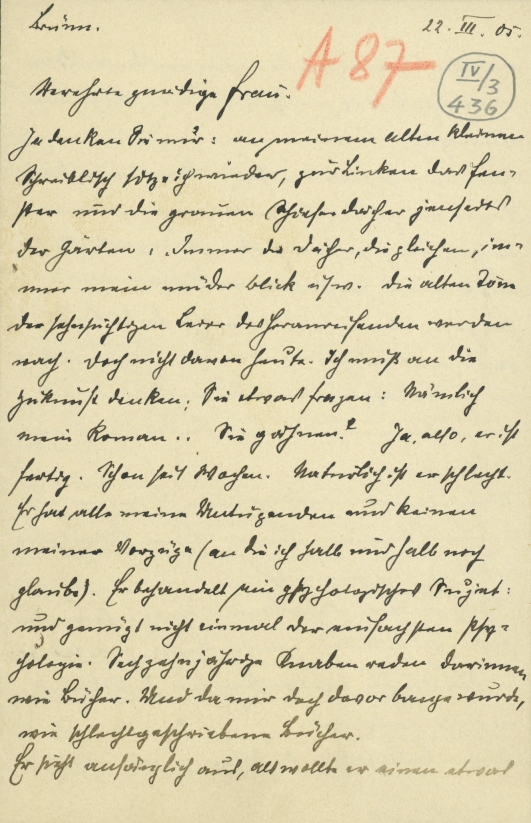 Brünn.
22. III. 05.
A 87
IV/3
436
Verehrte gnädige Frau.
Sie denken Sie mir: an meinem alten kleinen
Schreibtisch sitze ich wieder, zur Linken das Fen-
ster und die grauen Schieferdächer jenseits
der Gärten. Immer die Dächer, die gleichen, im-
mer mein müder Blick usw. Die alten Töne
der sehnsüchtigen Leier des Heranreifenden werden
wach. Doch nicht davon heute. Ich muß an die
Zukunft denken; Sie etwas fragen: Nämlich
mein Roman .. Sie gähnen? Ja, also, er ist
fertig. Schon seit Wochen. Natürlich ist er schlecht.
Er hat alle meine Untugenden und keinen
meiner Vorzüge (an die ich halb und halb noch
glaube). Er behandelt ein psychologisches Sujet:
und genügt nicht einmal der einfachsten Psy-
chologie. Sechzehnjährige Knaben reden darinnen
wie Bücher. Und da mir doch davor bange wurde,
wie schlechtgeschriebene Bücher.
Er sieht anfänglich aus, als wollte er einen etwas